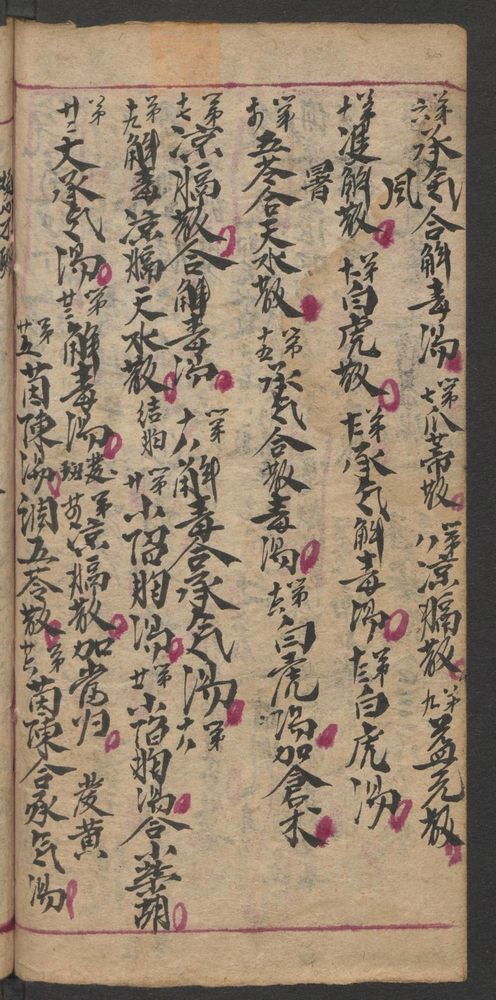 第六承氣合解毒湯 第七瓜蒂散 第八凉膈散 第九益元散
風
第十双解散 第十一白虎散 第十二承气解毒湯 第十三白虎湯
暑
第十四五苓合天水散 第十五承气合散毒湯 第十六白虎湯加倉朮
第十七凉膈散合解毒湯 第十八解毒合承气湯 第十八
第十九解毒凉膈天水散 結胸 第廿小陷胸湯 第廿小陷胸湯合小柴胡
第廿二大承气湯 第廿三解毒湯 發班 第廿四凉膈散加当归 發黄
第廿五茵陳湯調五苓散 第廿六茵陳合承气湯